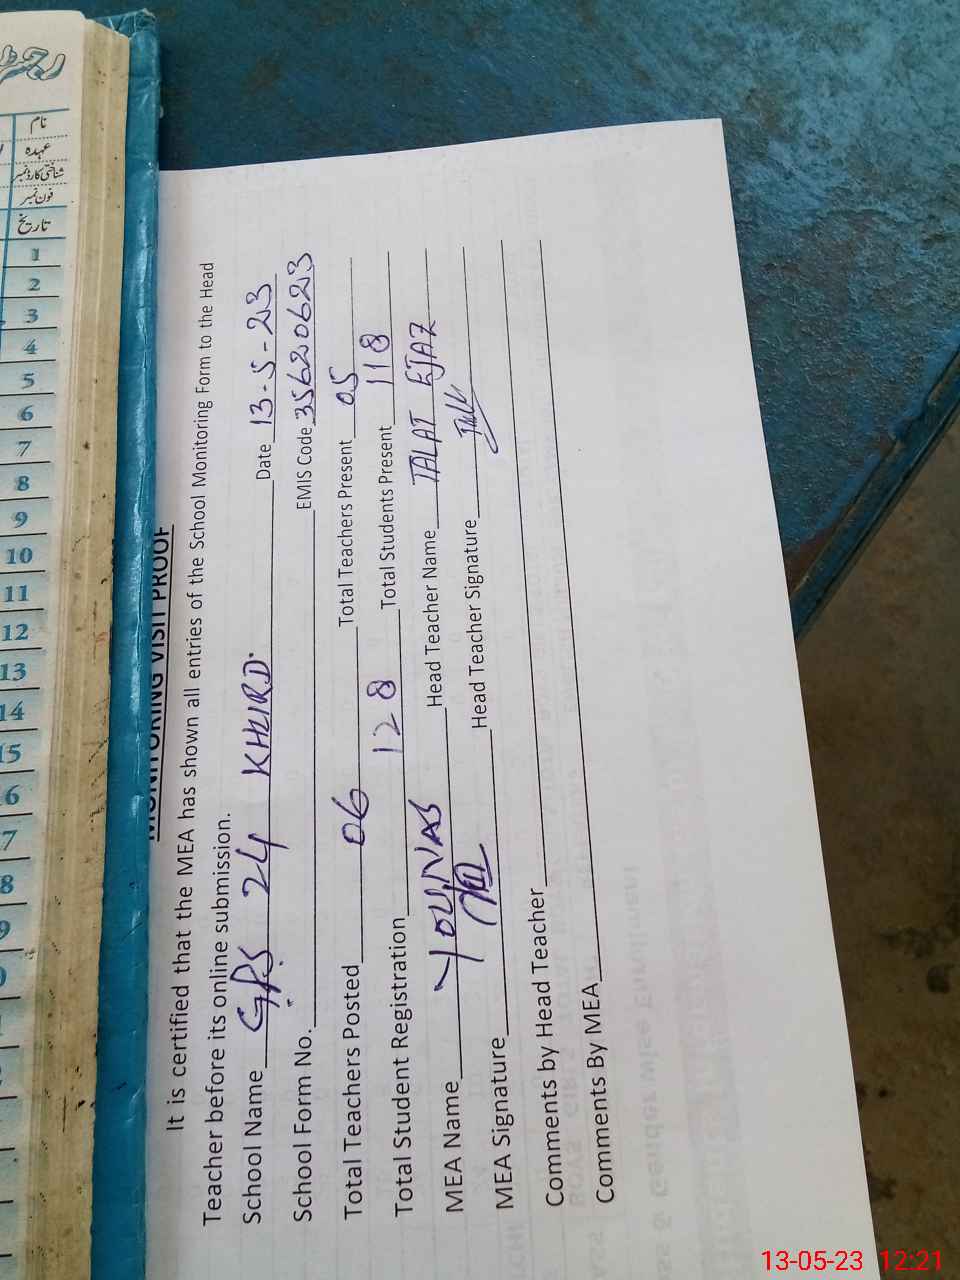 رجسٹر
نام
عہدہ
شناختی کارڈ نمبر
فون نمبر
تاریخ
1
2
3
4
5
6
7
8
9
10
11
12
13
14
15
6
7
8
9
MONITORING VISIT PROOF
It is certified that the MEA has shown all entries of the School Monitoring Form to the Head
Teacher before its online submission.
School Name GPS 24 KHIRD. Date 13-5-23
School Form No. EMIS Code 35620623
Total Teachers Posted 06 Total Teachers Present 05
Total Student Registration 128 Total Students Present 118
MEA Name YOUNAS Head Teacher Name TALAT EJAZ
MEA Signature Head Teacher Signature
Comments by Head Teacher
Comments By MEA
13-05-23 12:21